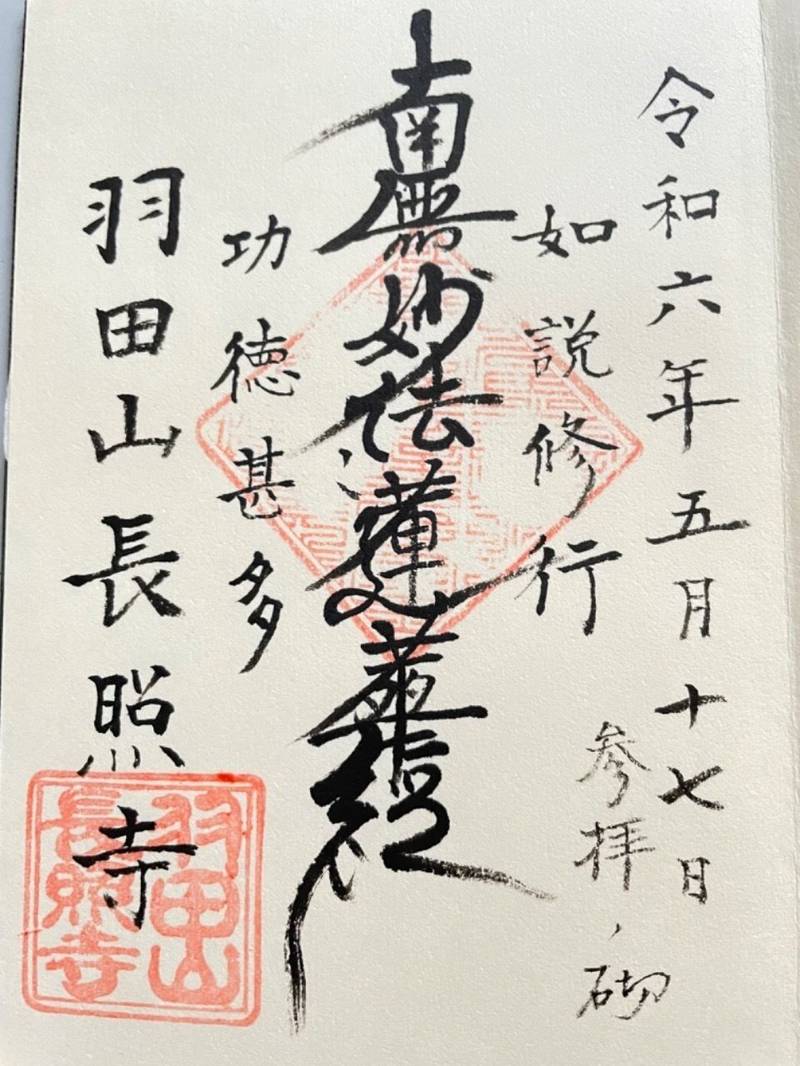 令和六年五月十七日
参拝ノ砌
如説修行
南無妙法蓮華経
功徳甚多
羽田山長照寺
羽田山
長照寺